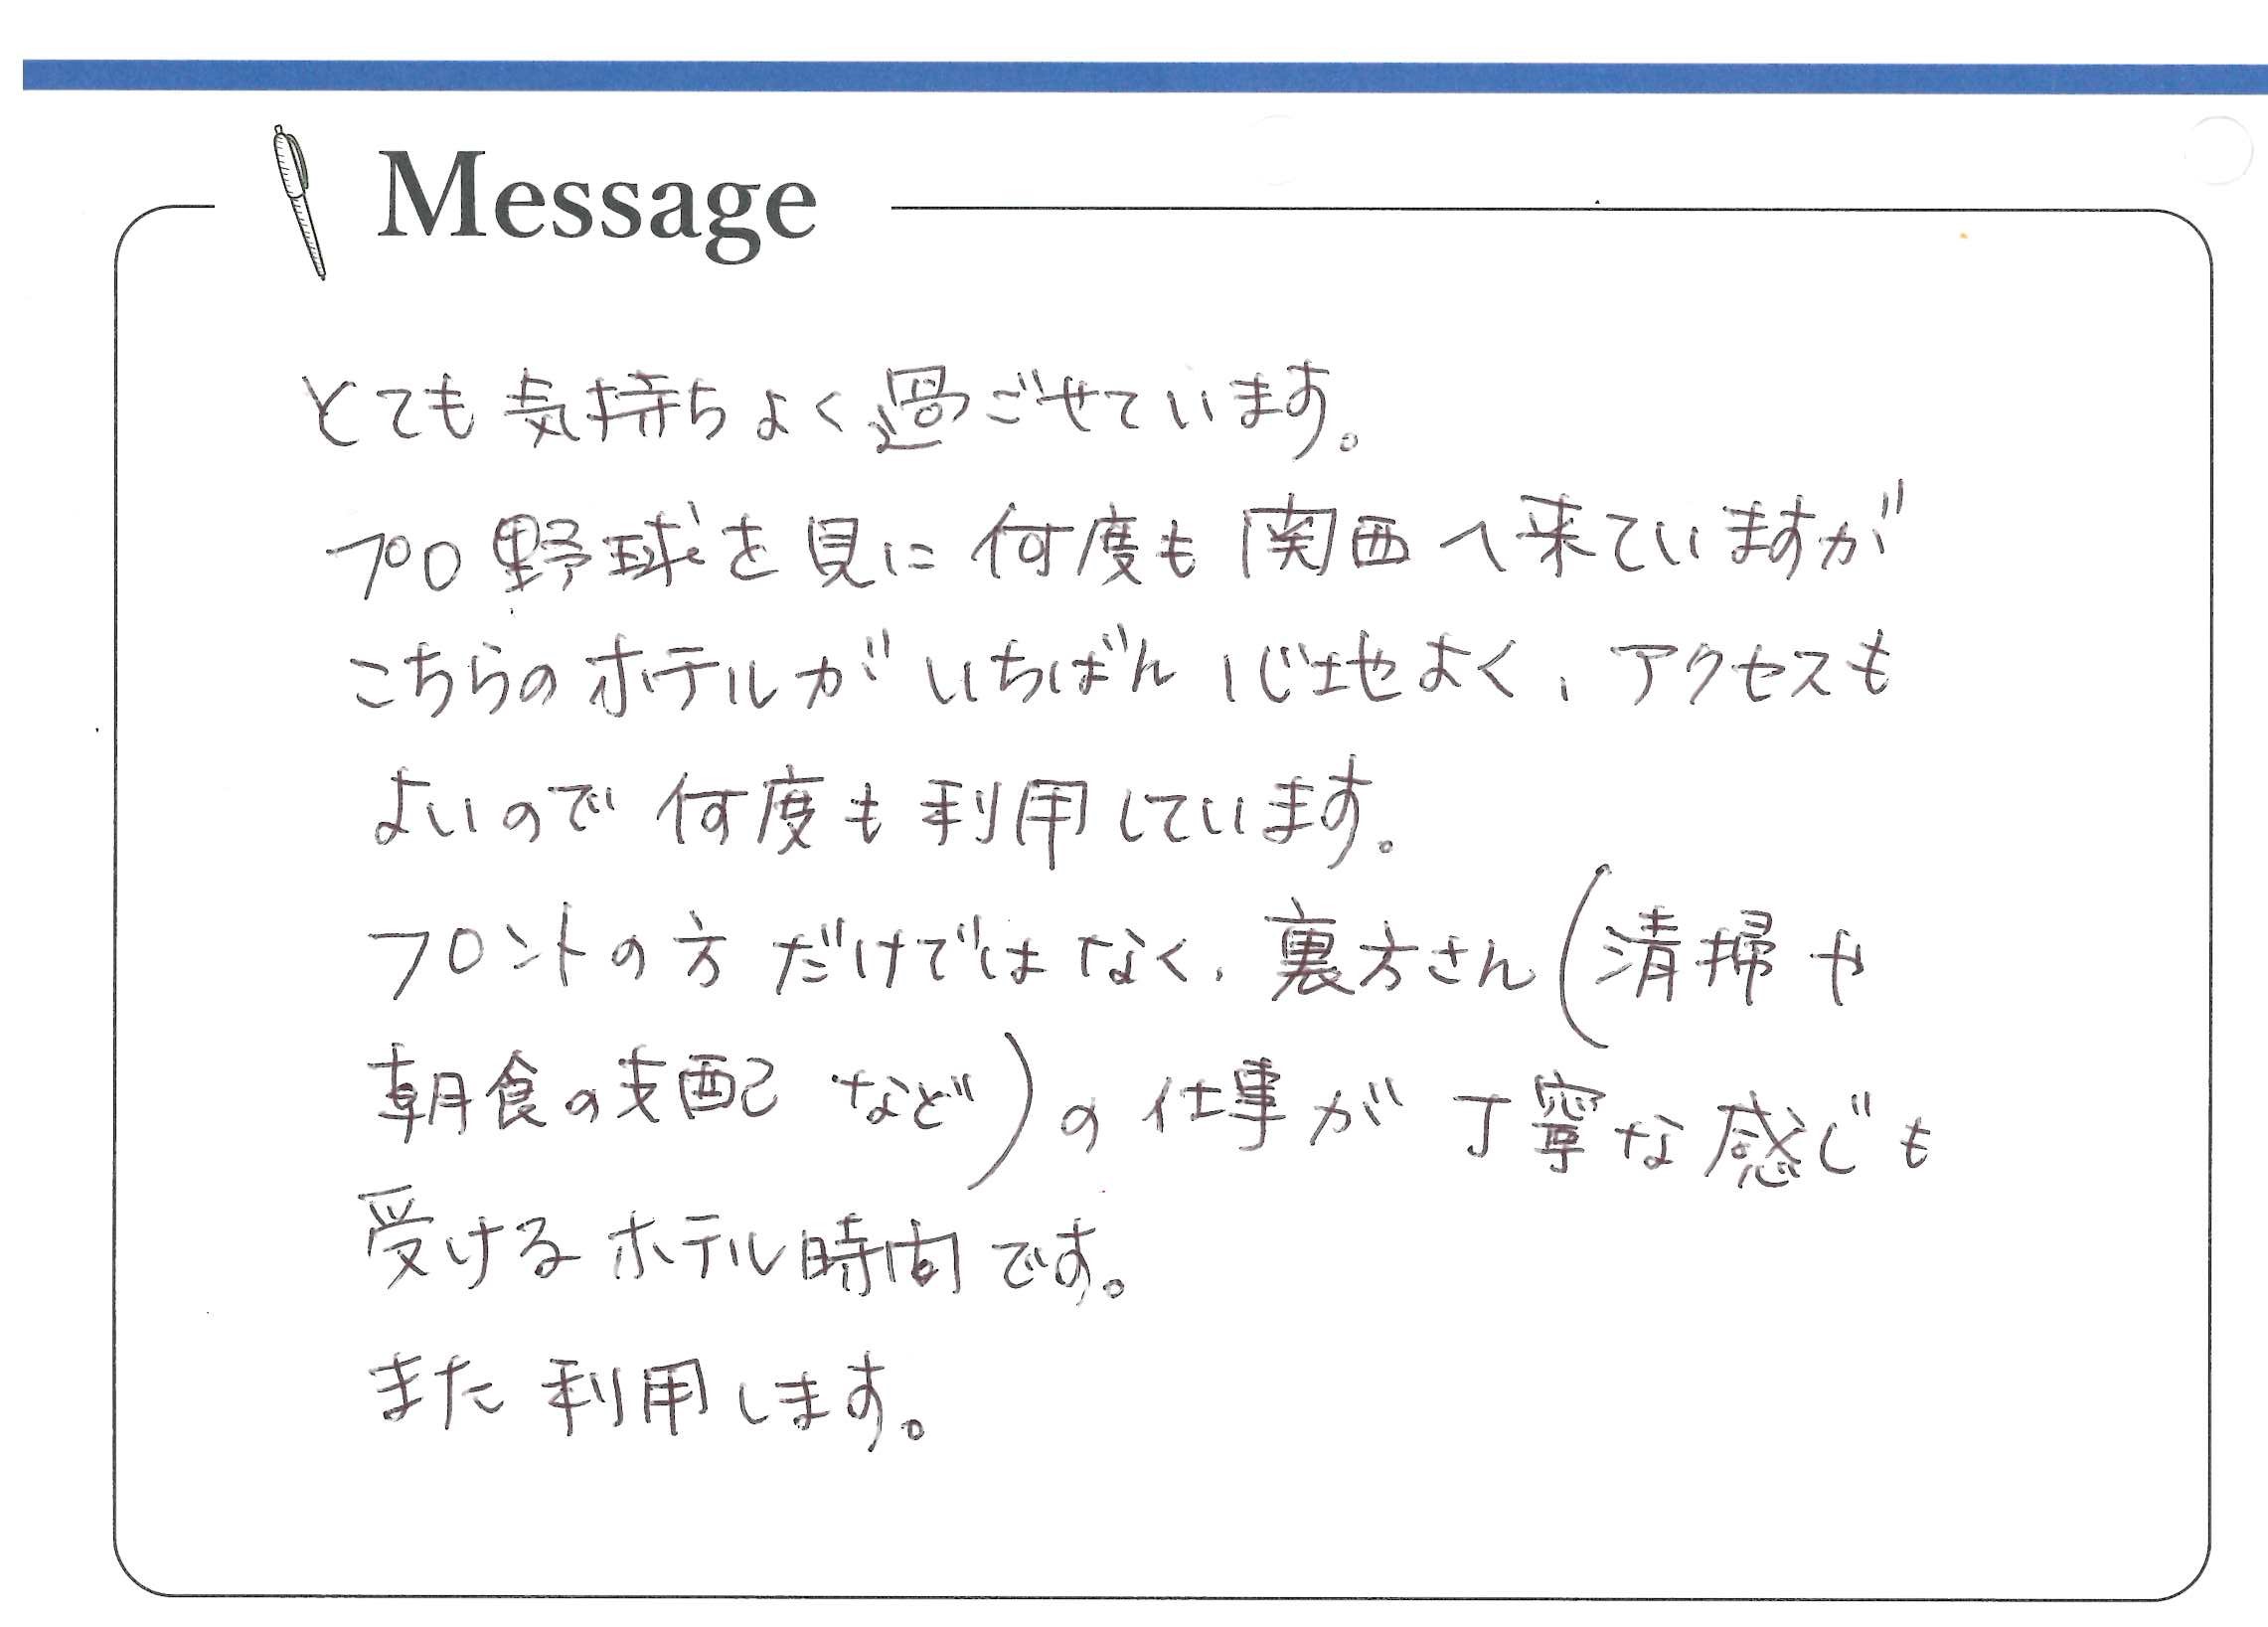 Message
とても気持ちよく過ごせています。
プロ野球を見に何度も関西へ来ていますが
こちらのホテルがいちばん心地よく、アクセスも
よいので何度も利用しています。
フロントの方だけではなく、裏方さん(清掃や
朝食の支配など)の仕事が丁寧な感じも
受けるホテル時間です。
また利用します。